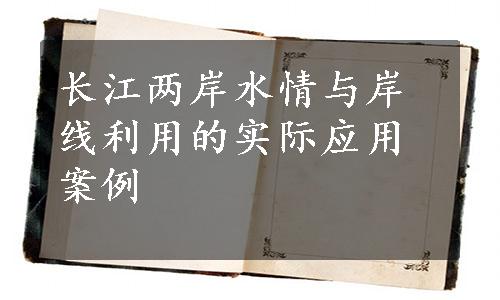 长江两岸水情与岸
线利用的实际应用
案例